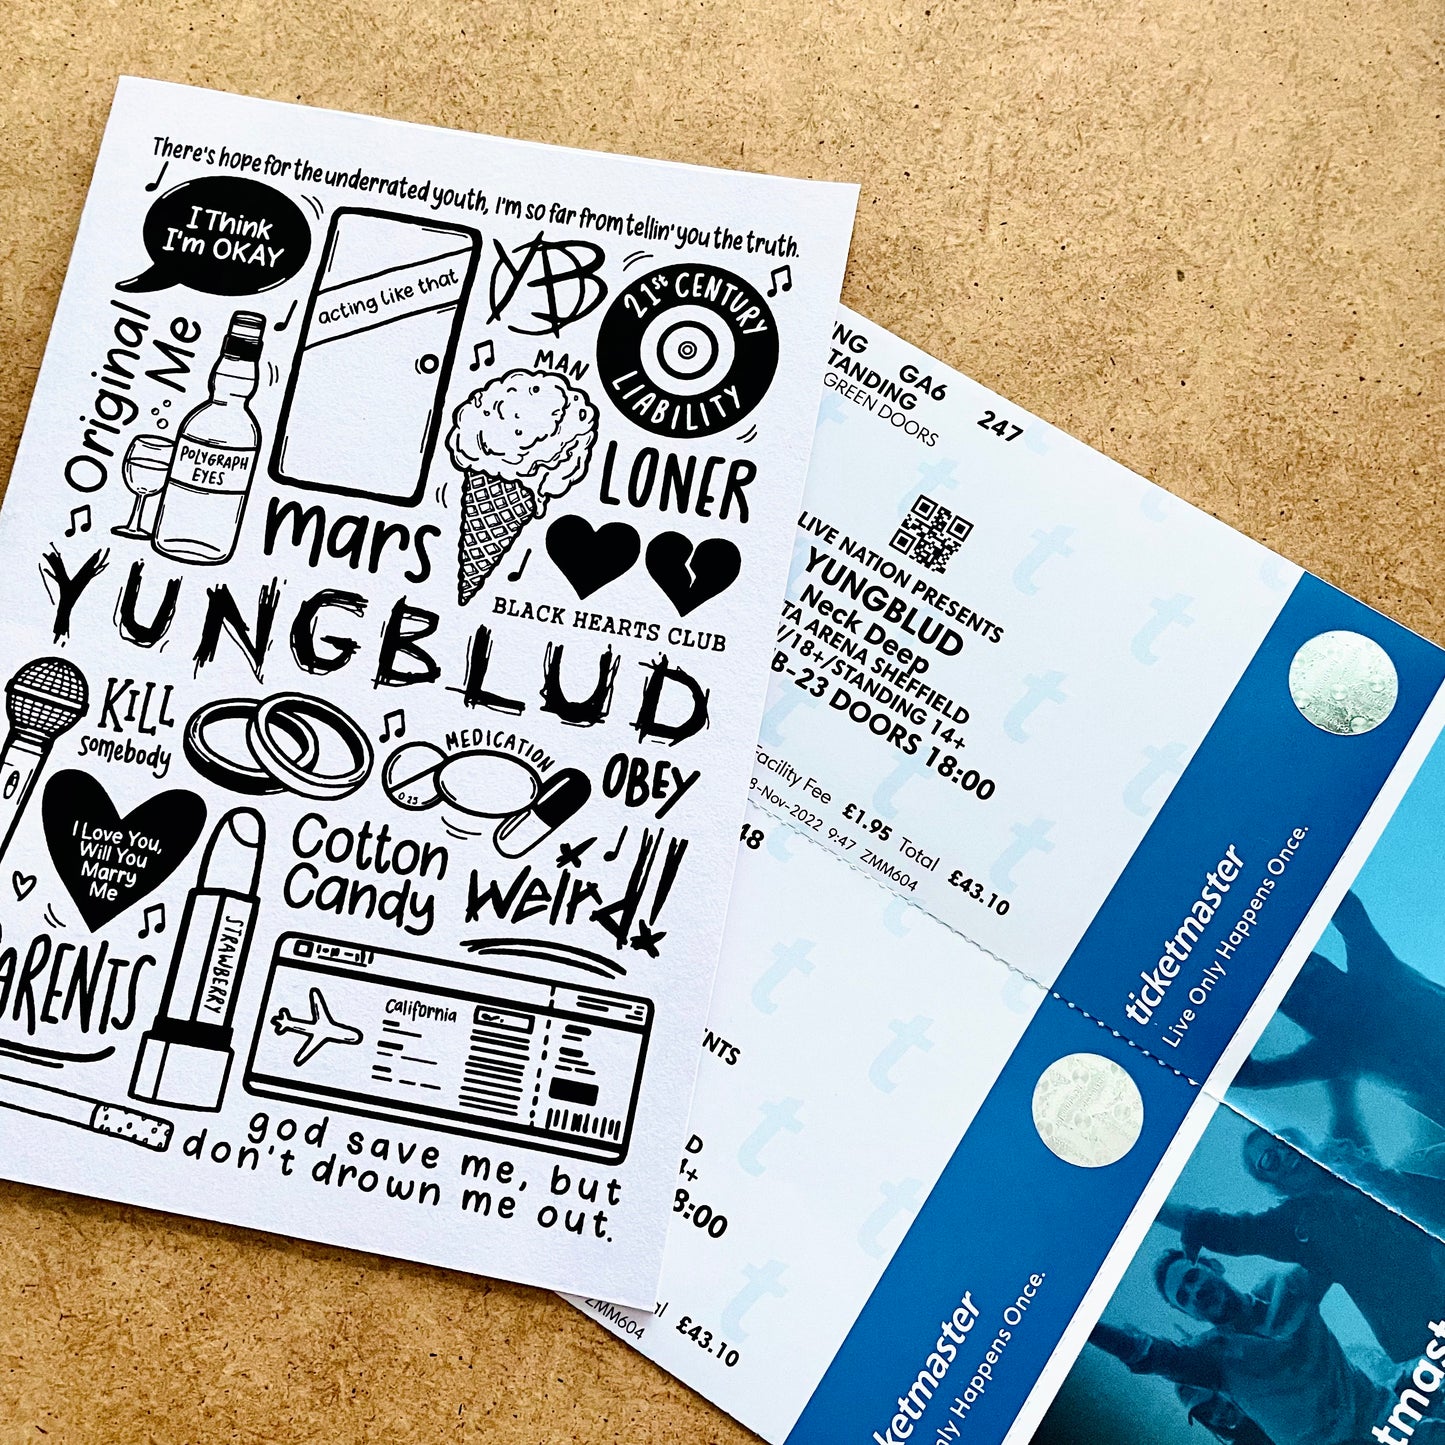 There's hope for the underrated youth, I'm so far from tellin' you the truth.
I Think
I'm OKAY
acting like that
YB
21st CENTURY
LIABILITY
Original
Me
MAN
POLYGRAPH
EYES
LONER
mars
BLACK HEARTS CLUB
YUNGBLUD
KILL
somebody
MEDICATION
0.25
OBEY
I Love You,
Will You
Marry
Me
Cotton
Candy
weird!
PARENTS
STRAWBERRY
California
god save me, but
don't drown me out.
GA6
247
TANDING
GREEN DOORS
LIVE NATION PRESENTS
YUNGBLUD
Neck Deep
ARENA SHEFFIELD
/18+/STANDING 14+
B-23 DOORS 18:00
Facility Fee £1.95 Total £43.10
8-Nov-2022 9:47 ZMM604
48
NTS
D
4+
8:00
£43.10
ZMM604
ticketmaster
Live Only Happens Once.
ketmaster
nly Happens Once.
tmast